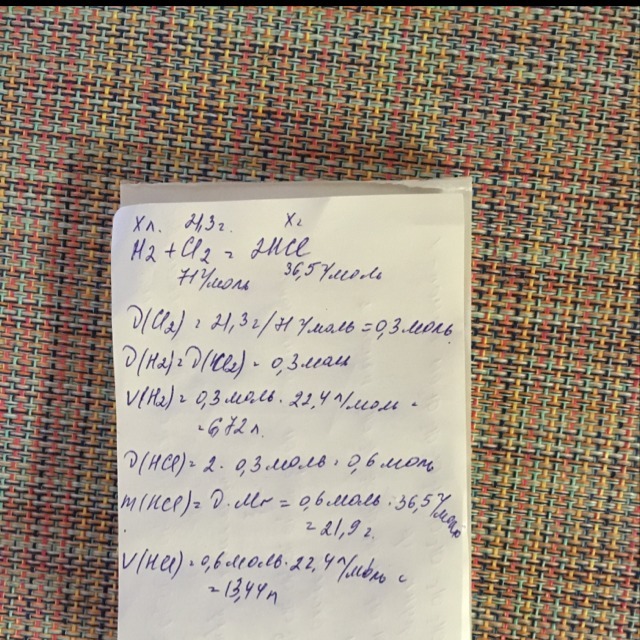 Xл. 21,3г. Xг
H2 + Cl2 = 2HCl
71 г/моль 36,5 г/моль
ν(Cl2) = 21,3г/71 г/моль = 0,3 моль.
ν(H2) = ν(Cl2) = 0,3 моль
V(H2) = 0,3 моль · 22,4 л/моль =
= 6,72 л.
ν(HCl) = 2 · 0,3 моль = 0,6 моль
m(HCl) = ν · Mr = 0,6 моль · 36,5 г/моль
= 21,9 г.
V(HCl) = 0,6 моль · 22,4 л/моль =
= 13,44 л